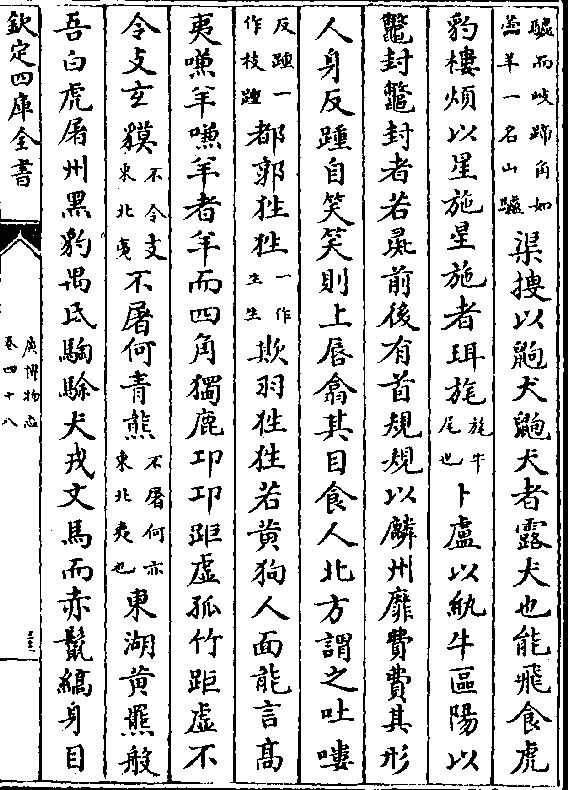 驢而岐蹄角如
羊一名山驢
渠搜以䶂犬䶂犬者露犬也能飛食虎
豹樓煩以星施星施者珥旄
旄牛
尾也
卜盧以紈牛區陽以
鼈封鼈封者若彘前後有首規規以麟州靡費費其形
人身反踵自笑笑則上唇翕其目食人北方謂之吐嘍
反踵一
作枝踵
都郭狌狌
一作
生生
欺羽狌狌若黄狗人面能言髙
夷嗛羊嗛羊者羊而四角獨鹿卭卭距虚孤竹距虚不
令支玄貘
不令支
東北夷
不屠何青熊
不屠何亦
東北夷也
東湖黄羆般
吾白虎屠州黑豹禺氏騊駼犬戎文馬而赤鬛縞身目
欽定四庫全書
廣博物志
卷四十八